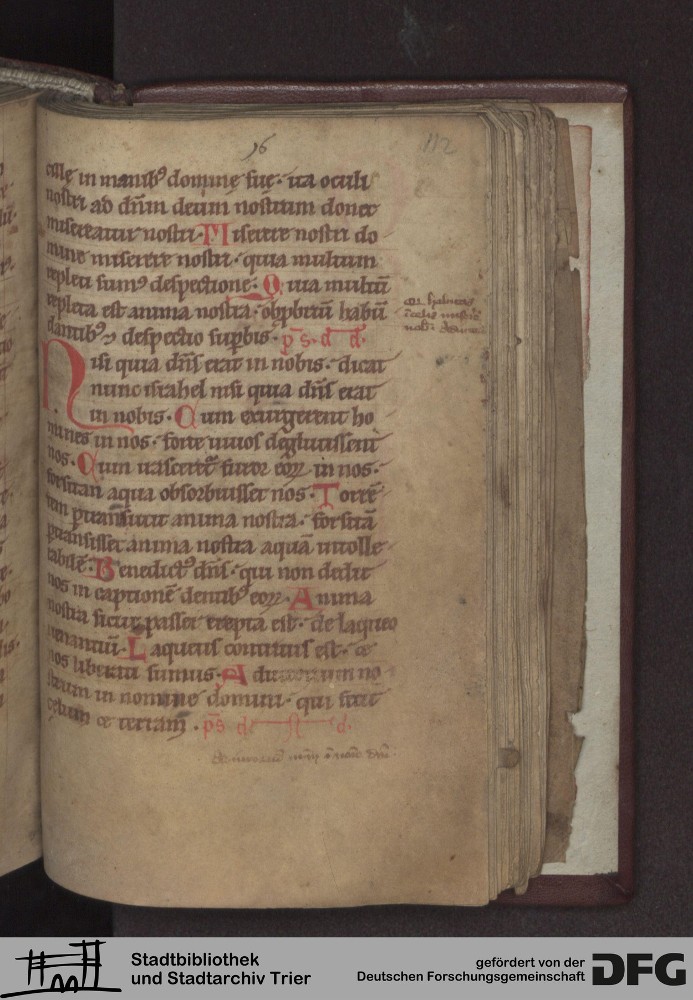 16
112
cille in manib⁹ domine sue · ita oculi
nostri ad dn̄m deum nostrum donec
misereatur nostri · Miserere nostri do
mine miserere nostri · quia multum
repleti sum⁹ despectione · Quia multū
repleta est anima nostra · obprbriū habū
dantib⁹ ⁊ despectio supbis · p̄s · d d ·
Nisi quia dn̄s erat in nobis · dicat
nunc israhel nisi quia dn̄s erat
in nobis · Cum exurgerent ho
mines in nos · forte uiuos deglutissent
nos · Cum irasceret᷑ furor eoꝝ in nos ·
forsitan aqua obsorbuisset nos · Torrē
tem ptransiuit anima nostra · forsitā
ptransisset anima nostra aquā intolle
rabilē · Benedict⁹ dn̄s · qui non dedit
nos in captionē dentib⁹ eoꝝ · Anima
nostra sicut passer erepta est · de laqueo
uenantiū · Laqueus contritus est · et
nos liberati sumus · Adiutorium no
strum in nomine domini · qui fecit
celum et terram · p̄s d d ·
Qui habitas
Stadtbibliothek
und Stadtarchiv Trier
gefördert von der
Deutschen Forschungsgemeinschaft
DFG